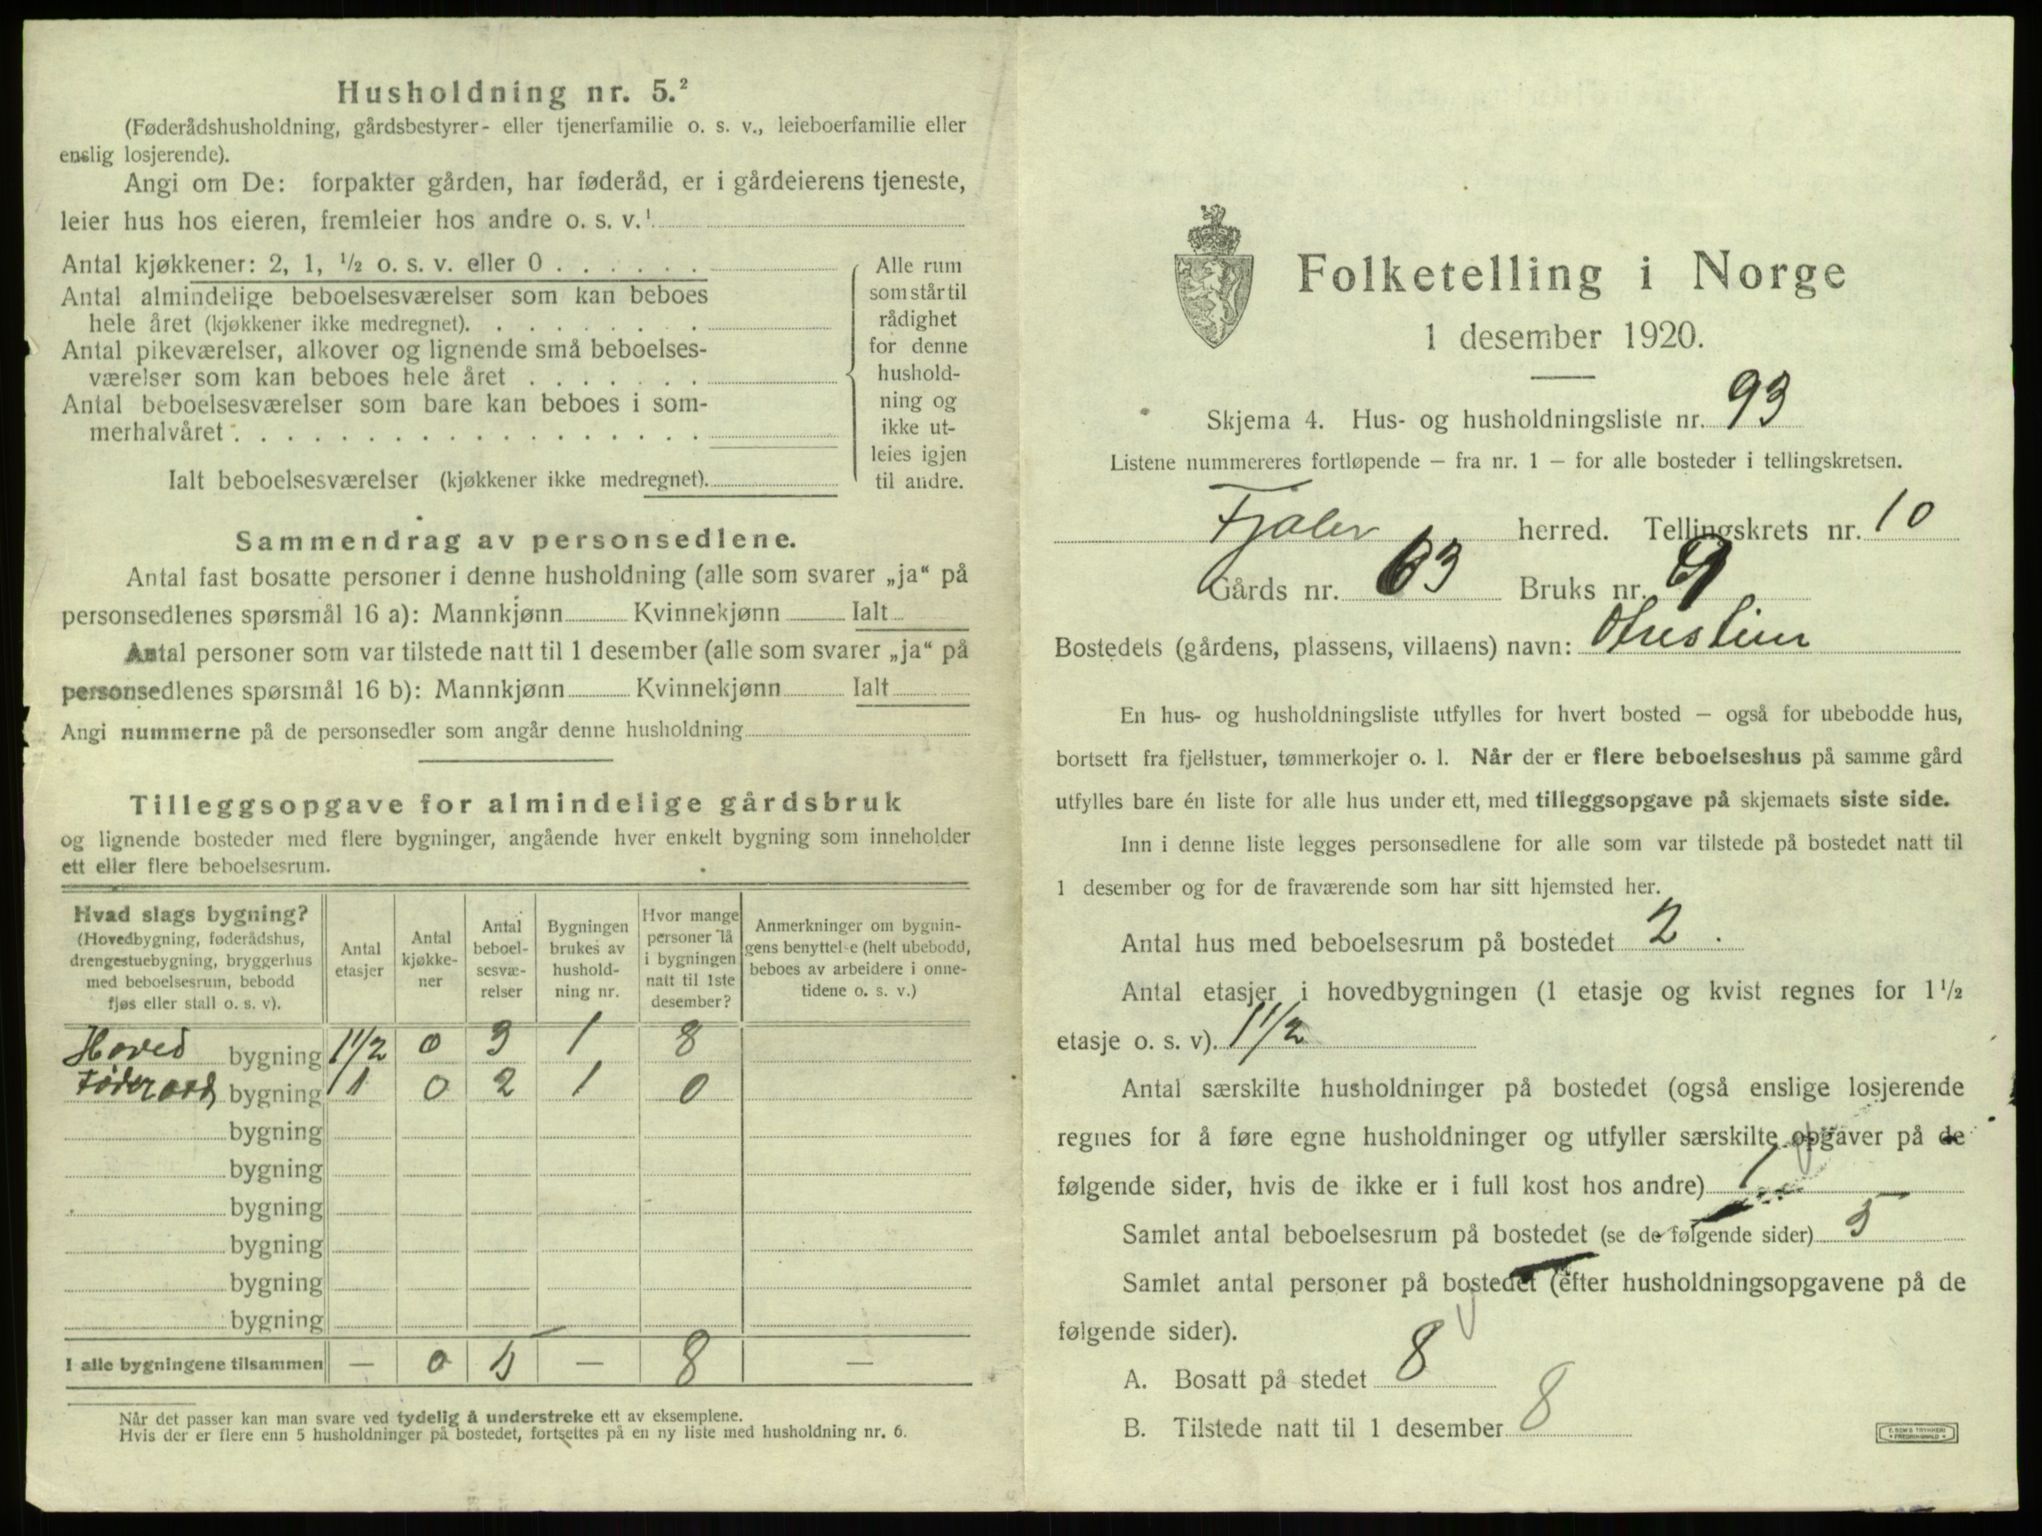 Husholdning nr. 5.²
(Føderådshusholdning, gårdsbestyrer- eller tjenerfamilie o. s. v., leieboerfamilie eller
enslig losjerende).
Angi om De: forpakter gården, har føderåd, er i gårdeierens tjeneste,
leier hus hos eieren, fremleier hos andre o. s. v.¹
Antal kjøkkener: 2, 1, ½ o. s. v. eller 0
Antal almindelige beboelsesværelser som kan beboes
hele året (kjøkkener ikke medregnet).
Antal pikeværelser, alkover og lignende små beboelses-
værelser som kan beboes hele året
Antal beboelsesværelser som bare kan beboes i som-
merhalvåret
Ialt beboelsesværelser (kjøkkener ikke medregnet).
Alle rum
som står til
rådighet
for denne
hushold-
ning og
ikke ut-
leies igjen
til andre.
Sammendrag av personsedlene.
Antal fast bosatte personer i denne husholdning (alle som svarer „ja“ på
personsedlenes spørsmål 16 a): Mannkjønn Kvinnekjønn Ialt
Antal personer som var tilstede natt til 1 desember (alle som svarer „ja“ på
personsedlenes spørsmål 16 b): Mannkjønn Kvinnekjønn Ialt
Angi nummerne på de personsedler som angår denne husholdning
Tilleggsopgave for almindelige gårdsbruk
og lignende bosteder med flere bygninger, angående hver enkelt bygning som inneholder
ett eller flere beboelsesrum.
Hvad slags bygning?
(Hovedbygning, føderådshus,
drengestuebygning, bryggerhus
med beboelsesrum, bebodd
fjøs eller stall o. s. v).
Antal
etasjer
Antal
kjøkke-
ner
Antal
beboel-
sesvæ-
relser
Bygningen
brukes av
hushold-
ning nr.
Hvor mange
personer lå
i bygningen
natt til 1ste
desember?
Anmerkninger om bygnin-
gens benyttelse (helt ubebodd,
beboes av arbeidere i onne-
tidene o. s. v.)
Hoved bygning 1½ 0 3 1 8
Føderaad bygning 1 0 2 1 0
bygning
bygning
bygning
bygning
bygning
bygning
I alle bygningene tilsammen — 0 5 — 8 —
Når det passer kan man svare ved tydelig å understreke ett av eksemplene.
Hvis der er flere enn 5 husholdninger på bostedet, fortsettes på en ny liste med husholdning nr. 6.
Folketelling i Norge
1 desember 1920.
Skjema 4. Hus- og husholdningsliste nr. 93
Listene nummereres fortløpende – fra nr. 1 – for alle bosteder i tellingskretsen.
Fjaler herred. Tellingskrets nr. 10
Gårds nr. 63 Bruks nr. 9
Bostedets (gårdens, plassens, villaens) navn:
En hus- og husholdningsliste utfylles for hvert bosted – også for ubebodde hus,
bortsett fra fjellstuer, tømmerkojer o. l. Når der er flere beboelseshus på samme gård
utfylles bare én liste for alle hus under ett, med tilleggsopgave på skjemaets siste side.
Inn i denne liste legges personsedlene for alle som var tilstede på bostedet natt til
1 desember og for de fraværende som har sitt hjemsted her.
Antal hus med beboelsesrum på bostedet 2.
Antal etasjer i hovedbygningen (1 etasje og kvist regnes for 1½
etasje o. s. v). 1½
Antal særskilte husholdninger på bostedet (også enslige losjerende
regnes for å føre egne husholdninger og utfyller særskilte opgaver på de
følgende sider, hvis de ikke er i full kost hos andre) 1
Samlet antal beboelsesrum på bostedet (se de følgende sider) 5
Samlet antal personer på bostedet (efter husholdningsopgavene på de
følgende sider).
A. Bosatt på stedet 8
B. Tilstede natt til 1 desember 8